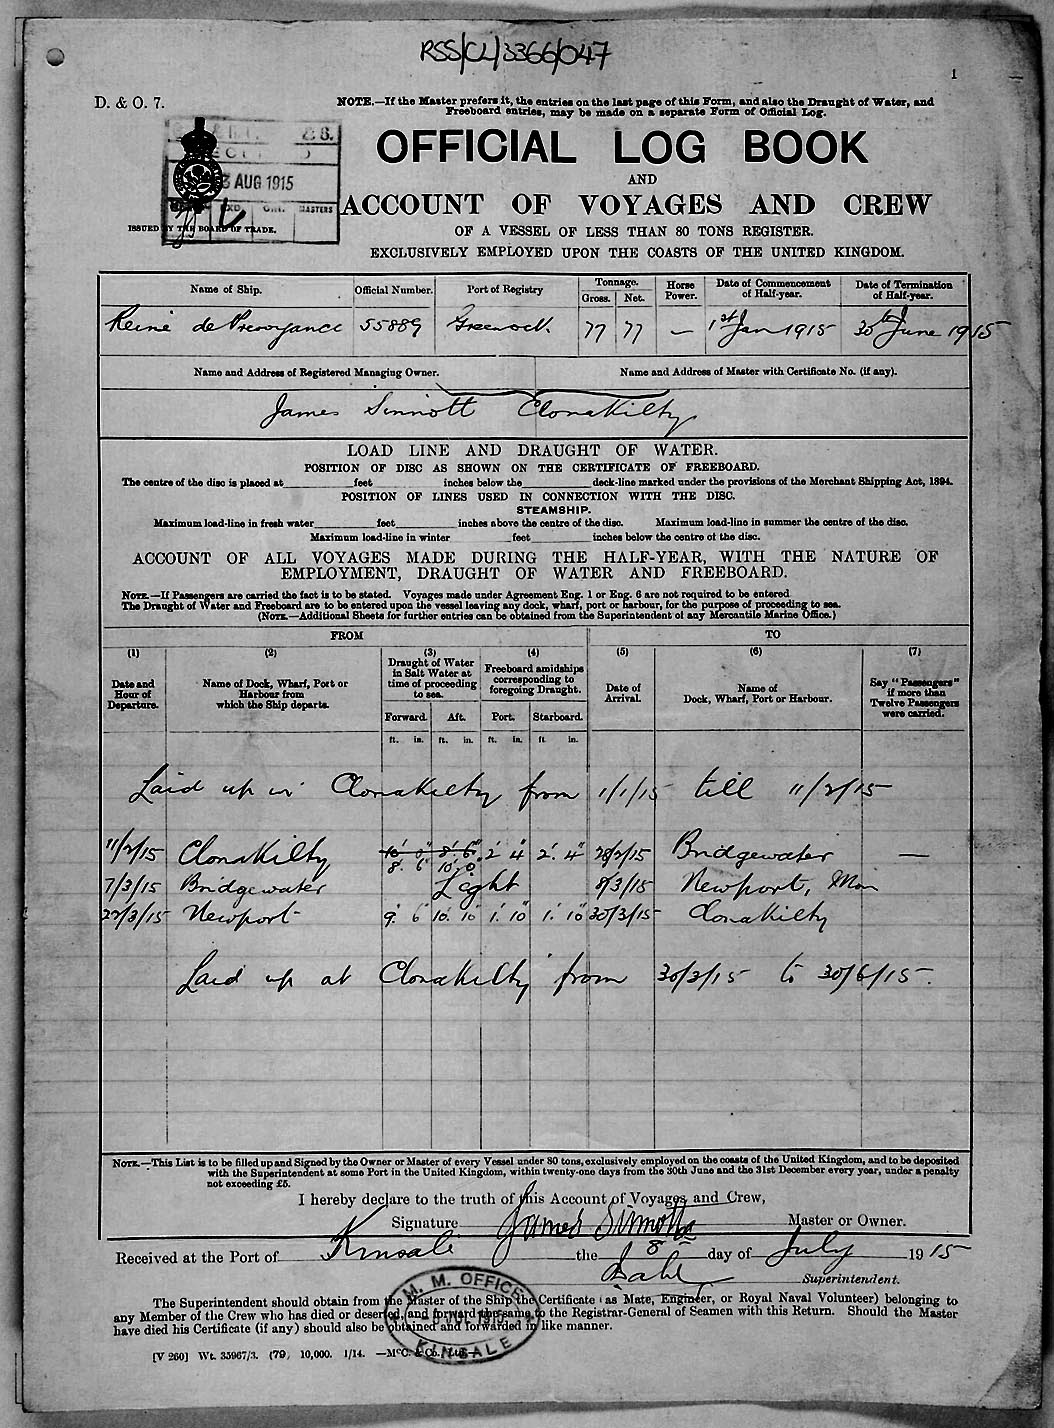 RSS/CL/3366/047
1
D. & O. 7.
NOTE.—If the Master prefers it, the entries on the last page of this Form, and also the Draught of Water, and
Freeboard entries, may be made on a separate Form of Official Log.
OFFICIAL LOG BOOK
AND
3 AUG 1915
ACCOUNT OF VOYAGES AND CREW
MASTERS
ISSUED BY THE BOARD OF TRADE.
OF A VESSEL OF LESS THAN 80 TONS REGISTER.
EXCLUSIVELY EMPLOYED UPON THE COASTS OF THE UNITED KINGDOM.
Name of Ship. Official Number. Port of Registry Tonnage. Gross. Net. Horse Power. Date of Commencement of Half-year. Date of Termination of Half-year.
Reine de Provoyance 55889 Greenock 77 77 — 1st Jan 1915 30th June 1915
Name and Address of Registered Managing Owner. Name and Address of Master with Certificate No. (if any).
James Sinnott Clonakilty
LOAD LINE AND DRAUGHT OF WATER.
POSITION OF DISC AS SHOWN ON THE CERTIFICATE OF FREEBOARD.
The centre of the disc is placed at feet inches below the deck-line marked under the provisions of the Merchant Shipping Act, 1894.
POSITION OF LINES USED IN CONNECTION WITH THE DISC.
STEAMSHIP.
Maximum load-line in fresh water feet inches above the centre of the disc. Maximum load-line in summer the centre of the disc.
Maximum load-line in winter feet inches below the centre of the disc.
ACCOUNT OF ALL VOYAGES MADE DURING THE HALF-YEAR, WITH THE NATURE OF
EMPLOYMENT, DRAUGHT OF WATER AND FREEBOARD.
NOTE.—If Passengers are carried the fact is to be stated. Voyages made under Agreement Eng. 1 or Eng. 6 are not required to be entered
The Draught of Water and Freeboard are to be entered upon the vessel leaving any dock, wharf, port or harbour, for the purpose of proceeding to sea.
(NOTE.—Additional Sheets for further entries can be obtained from the Superintendent of any Mercantile Marine Office.)
FROM TO
(1) (2) (3) (4) (5) (6) (7)
Date and Hour of Departure. Name of Dock, Wharf, Port or Harbour from which the Ship departs. Draught of Water in Salt Water at time of proceeding to sea. Freeboard amidships corresponding to foregoing Draught. Date of Arrival. Name of Dock, Wharf, Port or Harbour. Say "Passengers" if more than Twelve Passengers were carried.
Forward. Aft. Port. Starboard.
ft. in. ft. in. ft. in. ft in.
Laid up in Clonakilty from 1/1/15 till 11/2/15
11/2/15 Clonakilty 10' 0" 8' 6" 2' 4" 2' 4" 28/2/15 Bridgewater —
8' 6" 10' 0"
7/3/15 Bridgewater Light 8/3/15 Newport, Mon
27/3/15 Newport 9' 6" 10' 10" 1' 10" 1' 10" 30/3/15 Clonakilty
Laid up at Clonakilty from 30/3/15 to 30/6/15.
NOTE.—This List is to be filled up and Signed by the Owner or Master of every Vessel under 80 tons, exclusively employed on the coasts of the United Kingdom, and to be deposited
with the Superintendent at some Port in the United Kingdom, within twenty-one days from the 30th June and the 31st December every year, under a penalty
not exceeding £5.
I hereby declare to the truth of this Account of Voyages and Crew,
Signature James Sinnott Master or Owner.
Received at the Port of Kinsale the 8 day of July 1915
Superintendent.
The Superintendent should obtain from the Master of the Ship the Certificate (as Mate, Engineer, or Royal Naval Volunteer) belonging to
any Member of the Crew who has died or deserted, and forward the same to the Registrar-General of Seamen with this Return. Should the Master
have died his Certificate (if any) should also be obtained and forwarded in like manner.
M. M. OFFICE
KINSALE
[V 260] Wt. 35967/3. (79) 10,000. 1/14. —McC. & Co. Ltd.